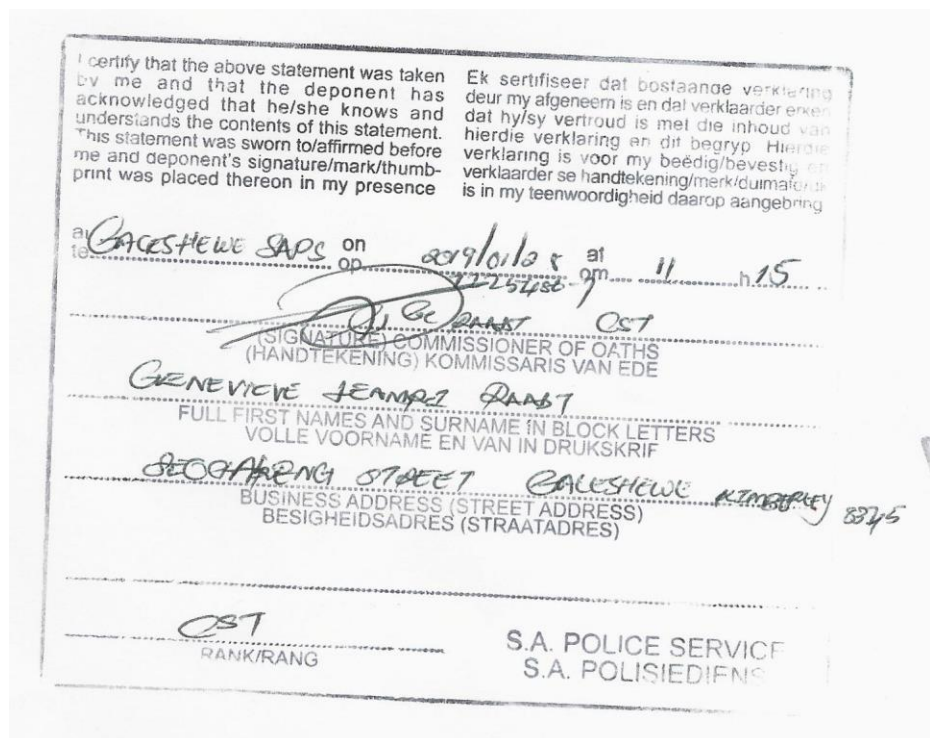 I certify that the above statement was taken
by me and that the deponent has
acknowledged that he/she knows and
understands the contents of this statement.
This statement was sworn to/affirmed before
me and deponent's signature/mark/thumb-
print was placed thereon in my presence
Ek sertifiseer dat bostaande verklaring
deur my afgeneem is en dat verklaarder erken
dat hy/sy vertroud is met die inhoud van
hierdie verklaring en dit begryp Hierdie
verklaring is voor my beëdig/bevestig en
verklaarder se handtekening/merk/duimafdruk
is in my teenwoordigheid daarop aangebring
at GALESHEWE SAPS on 2019/01/28 at 11 h 15
te op om
RAABT CST
(SIGNATURE) COMMISSIONER OF OATHS
(HANDTEKENING) KOMMISSARIS VAN EDE
GENEVIEVE RAABT
FULL FIRST NAMES AND SURNAME IN BLOCK LETTERS
VOLLE VOORNAME EN VAN IN DRUKSKRIF
STREET GALESHEWE KIMBERLEY 8345
BUSINESS ADDRESS (STREET ADDRESS)
BESIGHEIDSADRES (STRAATADRES)
CST
RANK/RANG
S.A. POLICE SERVICE
S.A. POLISIEDIENS